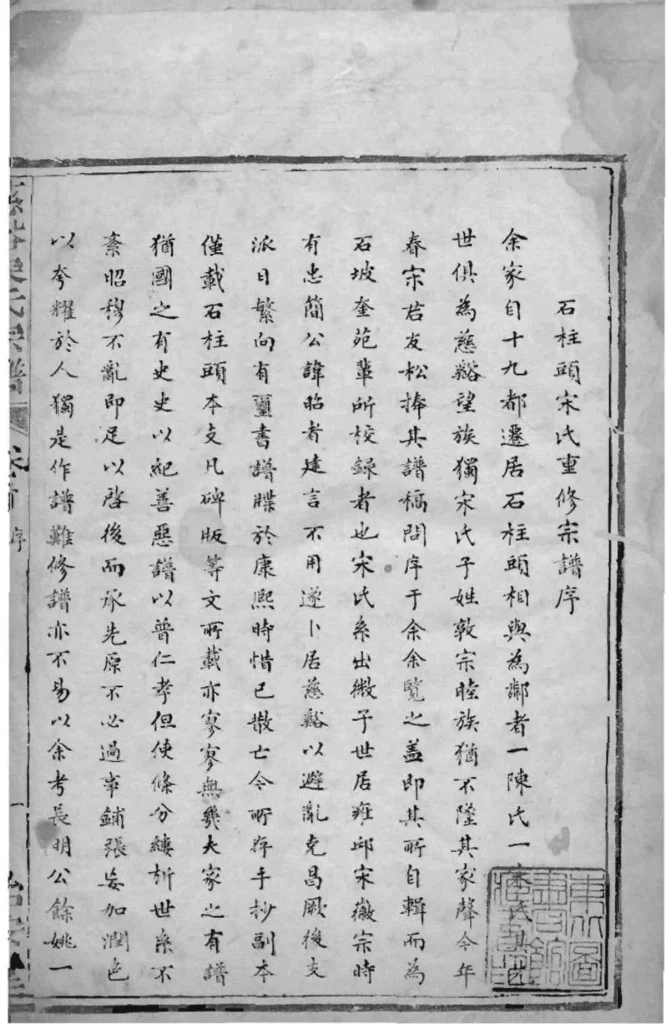 石柱頭宋氏重修宗譜序
余家自十九都遷居石柱頭相與為鄰者一陳氏一宋氏
世俱為慈谿望族獨宋氏子姓敦宗睦族猶不墜其家聲今年
春宋君友松捧其譜稿問序于余余覽之盖即其所自輯而為
石坡奎苑輩所校録者也宋氏系出微子世居雍邱宋徽宗時
有忠簡公諱昭者建言不用遂卜居慈谿以避亂克昌厥後支
派日繁向有璽書譜牒於康熙時惜已散亡今所存手抄副本
僅載石柱頭本支凡碑版等文所載亦寥寥無幾夫家之有譜
猶國之有史史以紀善惡譜以普仁孝但使條分縷析世系不
紊昭穆不亂即足以啓後而承先原不必過事鋪張妄加潤色
以夸耀於人獨是作譜難修譜亦不易以余考長明公餘姚一
宋氏宗譜
卷首
序
一